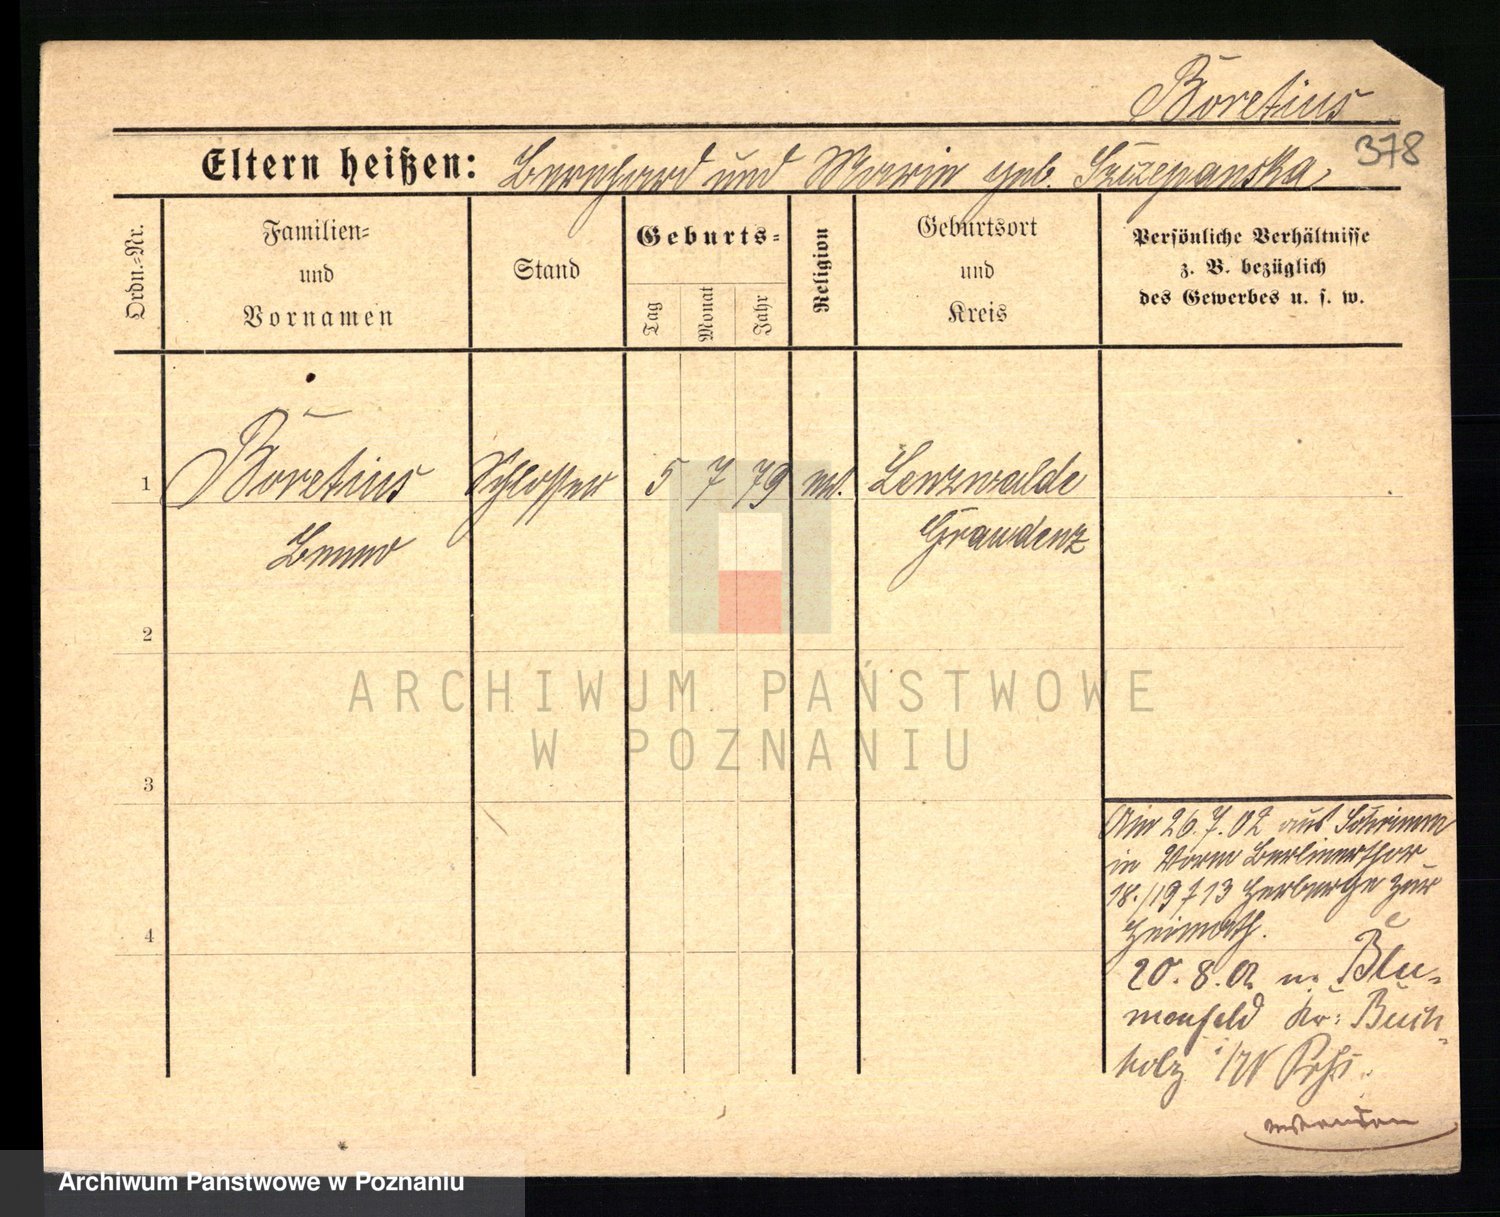 Boretius
378
Eltern heißen: Bernhard und Marie geb. Szczepanska,
Ordn.=Nr.
Familien=
und
Vornamen
Stand
Geburts=
Tag
Monat
Jahr
Religion
Geburtsort
und
Kreis
Persönliche Verhältnisse
z. B. bezüglich
des Gewerbes u. s. w.
1 Boretius Schlosser 5 7 79 Lenzwalde
Benno Graudenz
2
3
4
Am 26.7.02 aus
in Berlinerthor
18./19 Herberge zur
Heimath.
20.8.02 n. Blu-
menfeld Kr: Buch-
holz i/W Prßs.
ARCHIWUM PAŃSTWOWE
W POZNANIU
Archiwum Państwowe w Poznaniu